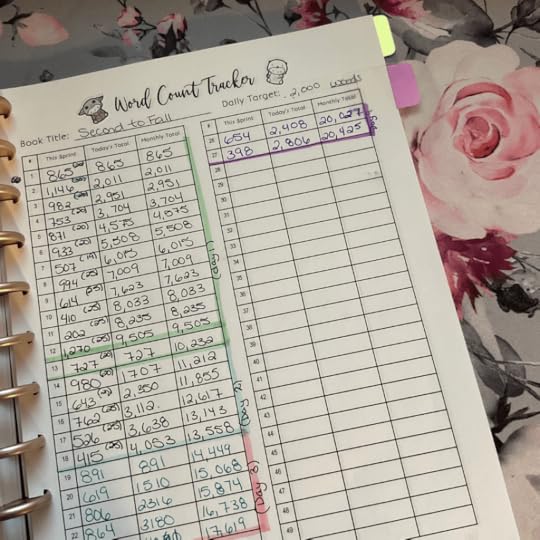 Word Count Tracker
Book Title: Second to Fall
Daily Target: 2,000 words
# This Sprint Today's Total Monthly Total
1 865 865 865
2 1,146 2,011 2,011
3 982 (20) 2,951 2,951
4 753 (20) 3,704 3,704
5 871 (20) 4,575 4,575
6 933 (20) 5,508 5,508
7 507 6,015 6,015
8 994 (25) 7,009 7,009
9 614 (25) 7,623 7,623
10 410 (25) 8,033 8,033
11 202 (25) 8,235 8,235
12 1,270 (25) 9,505 9,505
(Day 1)
13 727 727 10,232
14 980 1707 11,212
15 643 2,350 11,855
16 762 (25) 3,112. 12,617
17 526 (25) 3,638 13,143
18 415 (25) 4,053 13,558
(Day 2)
19 891 891 14,449
20 619 1510 15,068
21 806 2316 15,874
22 864 3180 16,738
17,619
(Day 3)
# This Sprint Today's Total Monthly Total
26 654 2,408 20,027
27 398 2,806 20,425
28
29
30
31
32
33
34
35
36
37
38
39
40
41
42
43
44
45
46
47
48
49